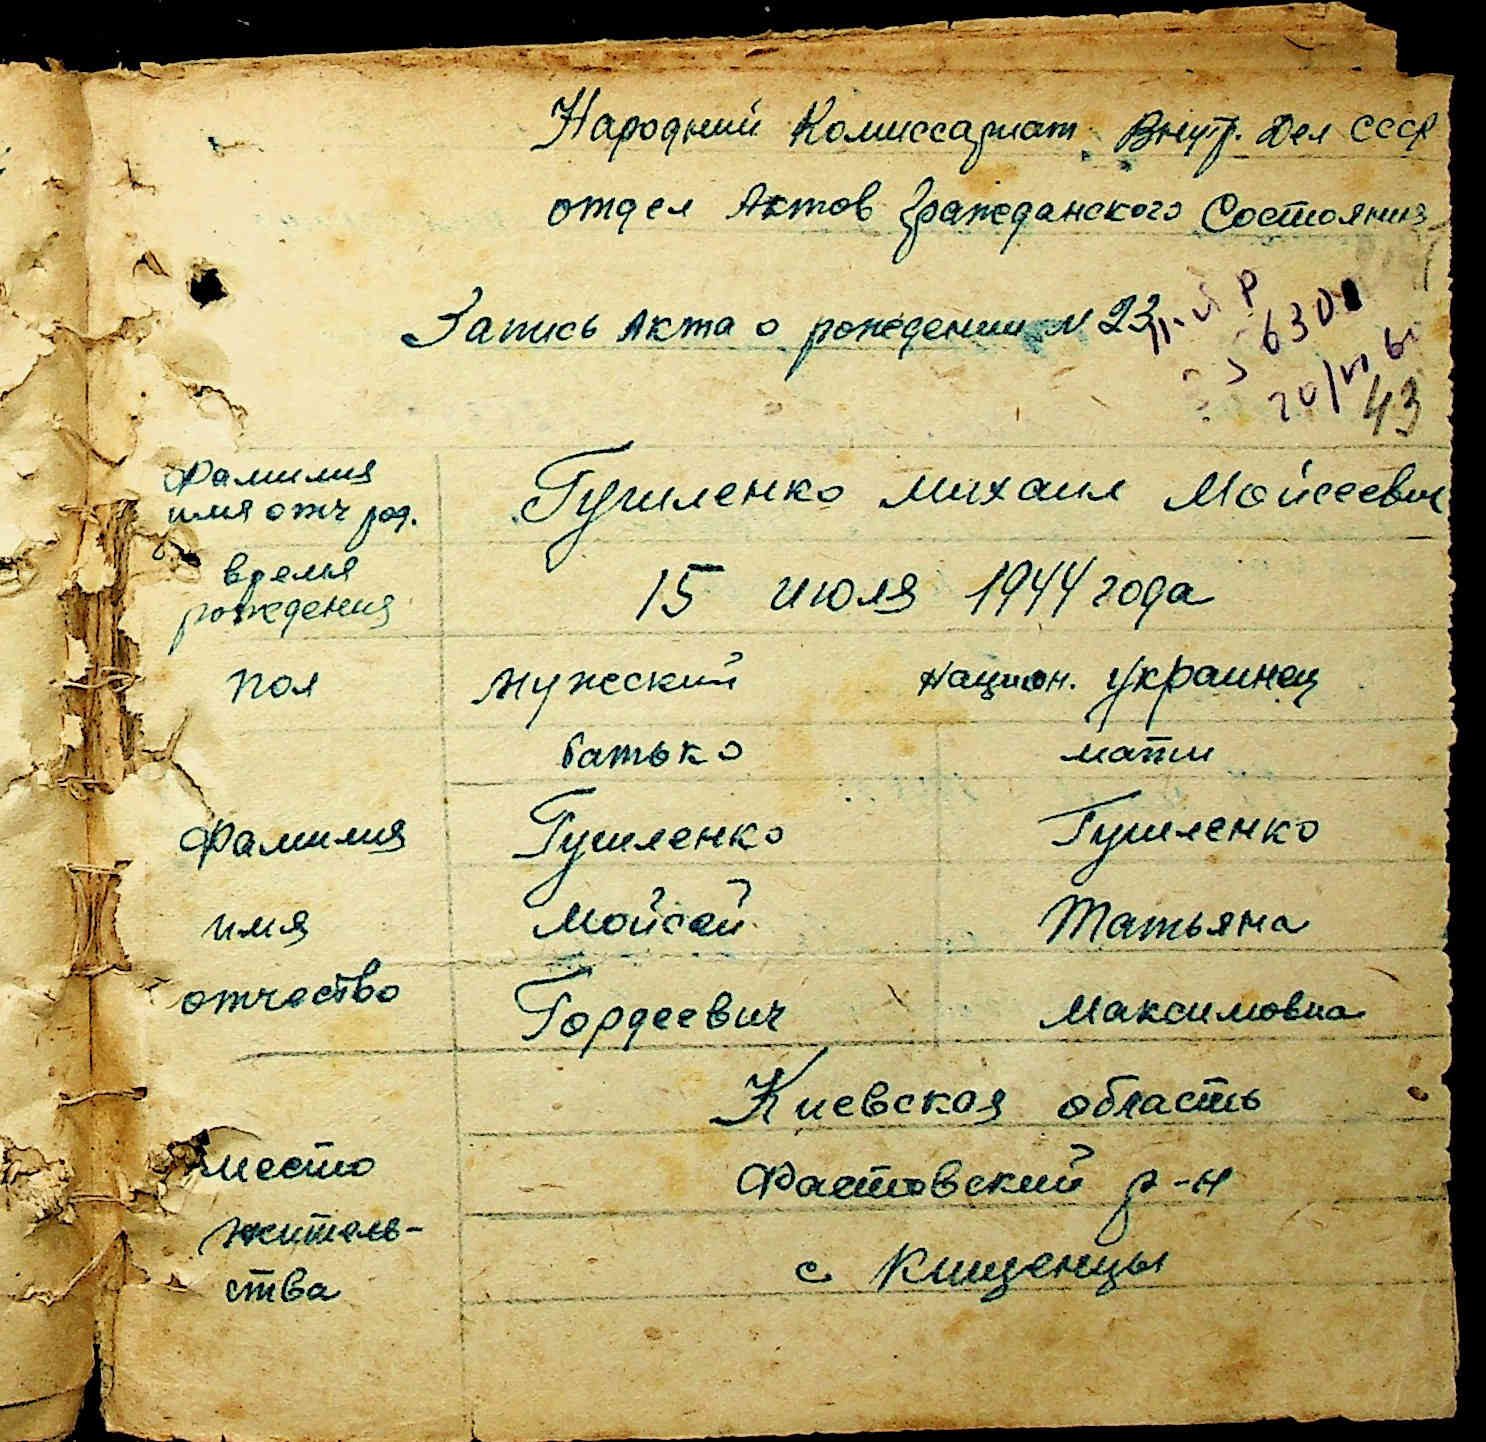 Народний Комиссариат Внутр. Дел СССР
отдел Актов Гражданского Состояния
Запись Акта о рождении N 23
6300
20/VI
43
Фамилия имя отч род. Гушленко Михаил Мойсеевич
время рождения 15 июля 1944 года
пол мужеский Национ. украинец
батько мати
Фамилия Гушленко Гушленко
имя Мойсей Татьяна
отчество Гордеевич Максимовна
Киевская область
место Фастовский р-н
житель- с Кищенцы
ства